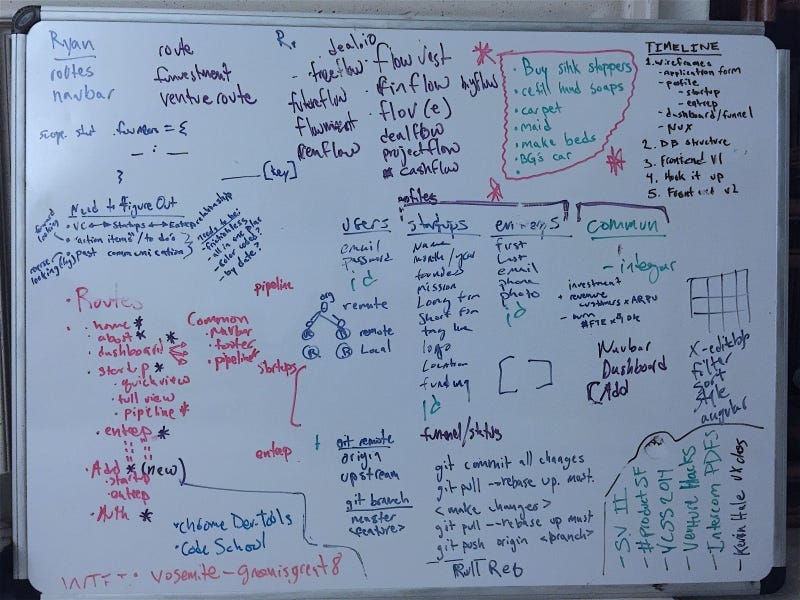 Ryan
routes
navbar
route
funvestment
venture route
R.
dealio
flow vest
finflow
futureflow
flov(e)
dealflow
projectflow
cashflow
myflow
Buy sink stoppers
refill hand soaps
carpet
maid
make beds
BG's car
TIMELINE
1. wireframes
- application form
- profile
- startup
- entrep
- dashboard/funnel
- NUX
2. DB structure
3. Frontend V1
4. Hook it up
5. Front end v2
= {
}
[key]
Need to Figure Out
VC Startups Entrep relationship
"action items"/"to do's"
past communication
forward looking
looking
needs to be:
- frictionless
- all in one place
- color coded?
- by date?
profiles
users
email
password
id
startups
Name
month/year
founded
mission
Long form
short form
tag line
logo
Location
funding
id
first
last
email
phone
photo
id
commun
- integer
investment
+ revenue
customers x ARPU
- burn
#FTE x 10k
pipeline
org
remote
remote
Local
Routes
home *
about *
dashboard *
startup *
quick view
full view
pipeline *
entrep *
Add * (new)
startup
entrep
Auth *
Common
navbar
footer
pipeline
startups
entrep
Navbar
Dashboard
Add
X-editable
filter
sort
style
angular
git remote
origin
upstream
git branch
master
<feature>
funnel/status
git commit all changes
git pull --rebase up. mast.
<make changes>
git pull --rebase up mast
git push origin <branch>
Pull Req
Chrome Dev-Tools
Code School
WIFI: Yosemite - gnomisgreat8
- SV II
- #productSF
- YCSS 2014
- Venture Hacks
- Intercom PDFs
- Kevin Hale UX class